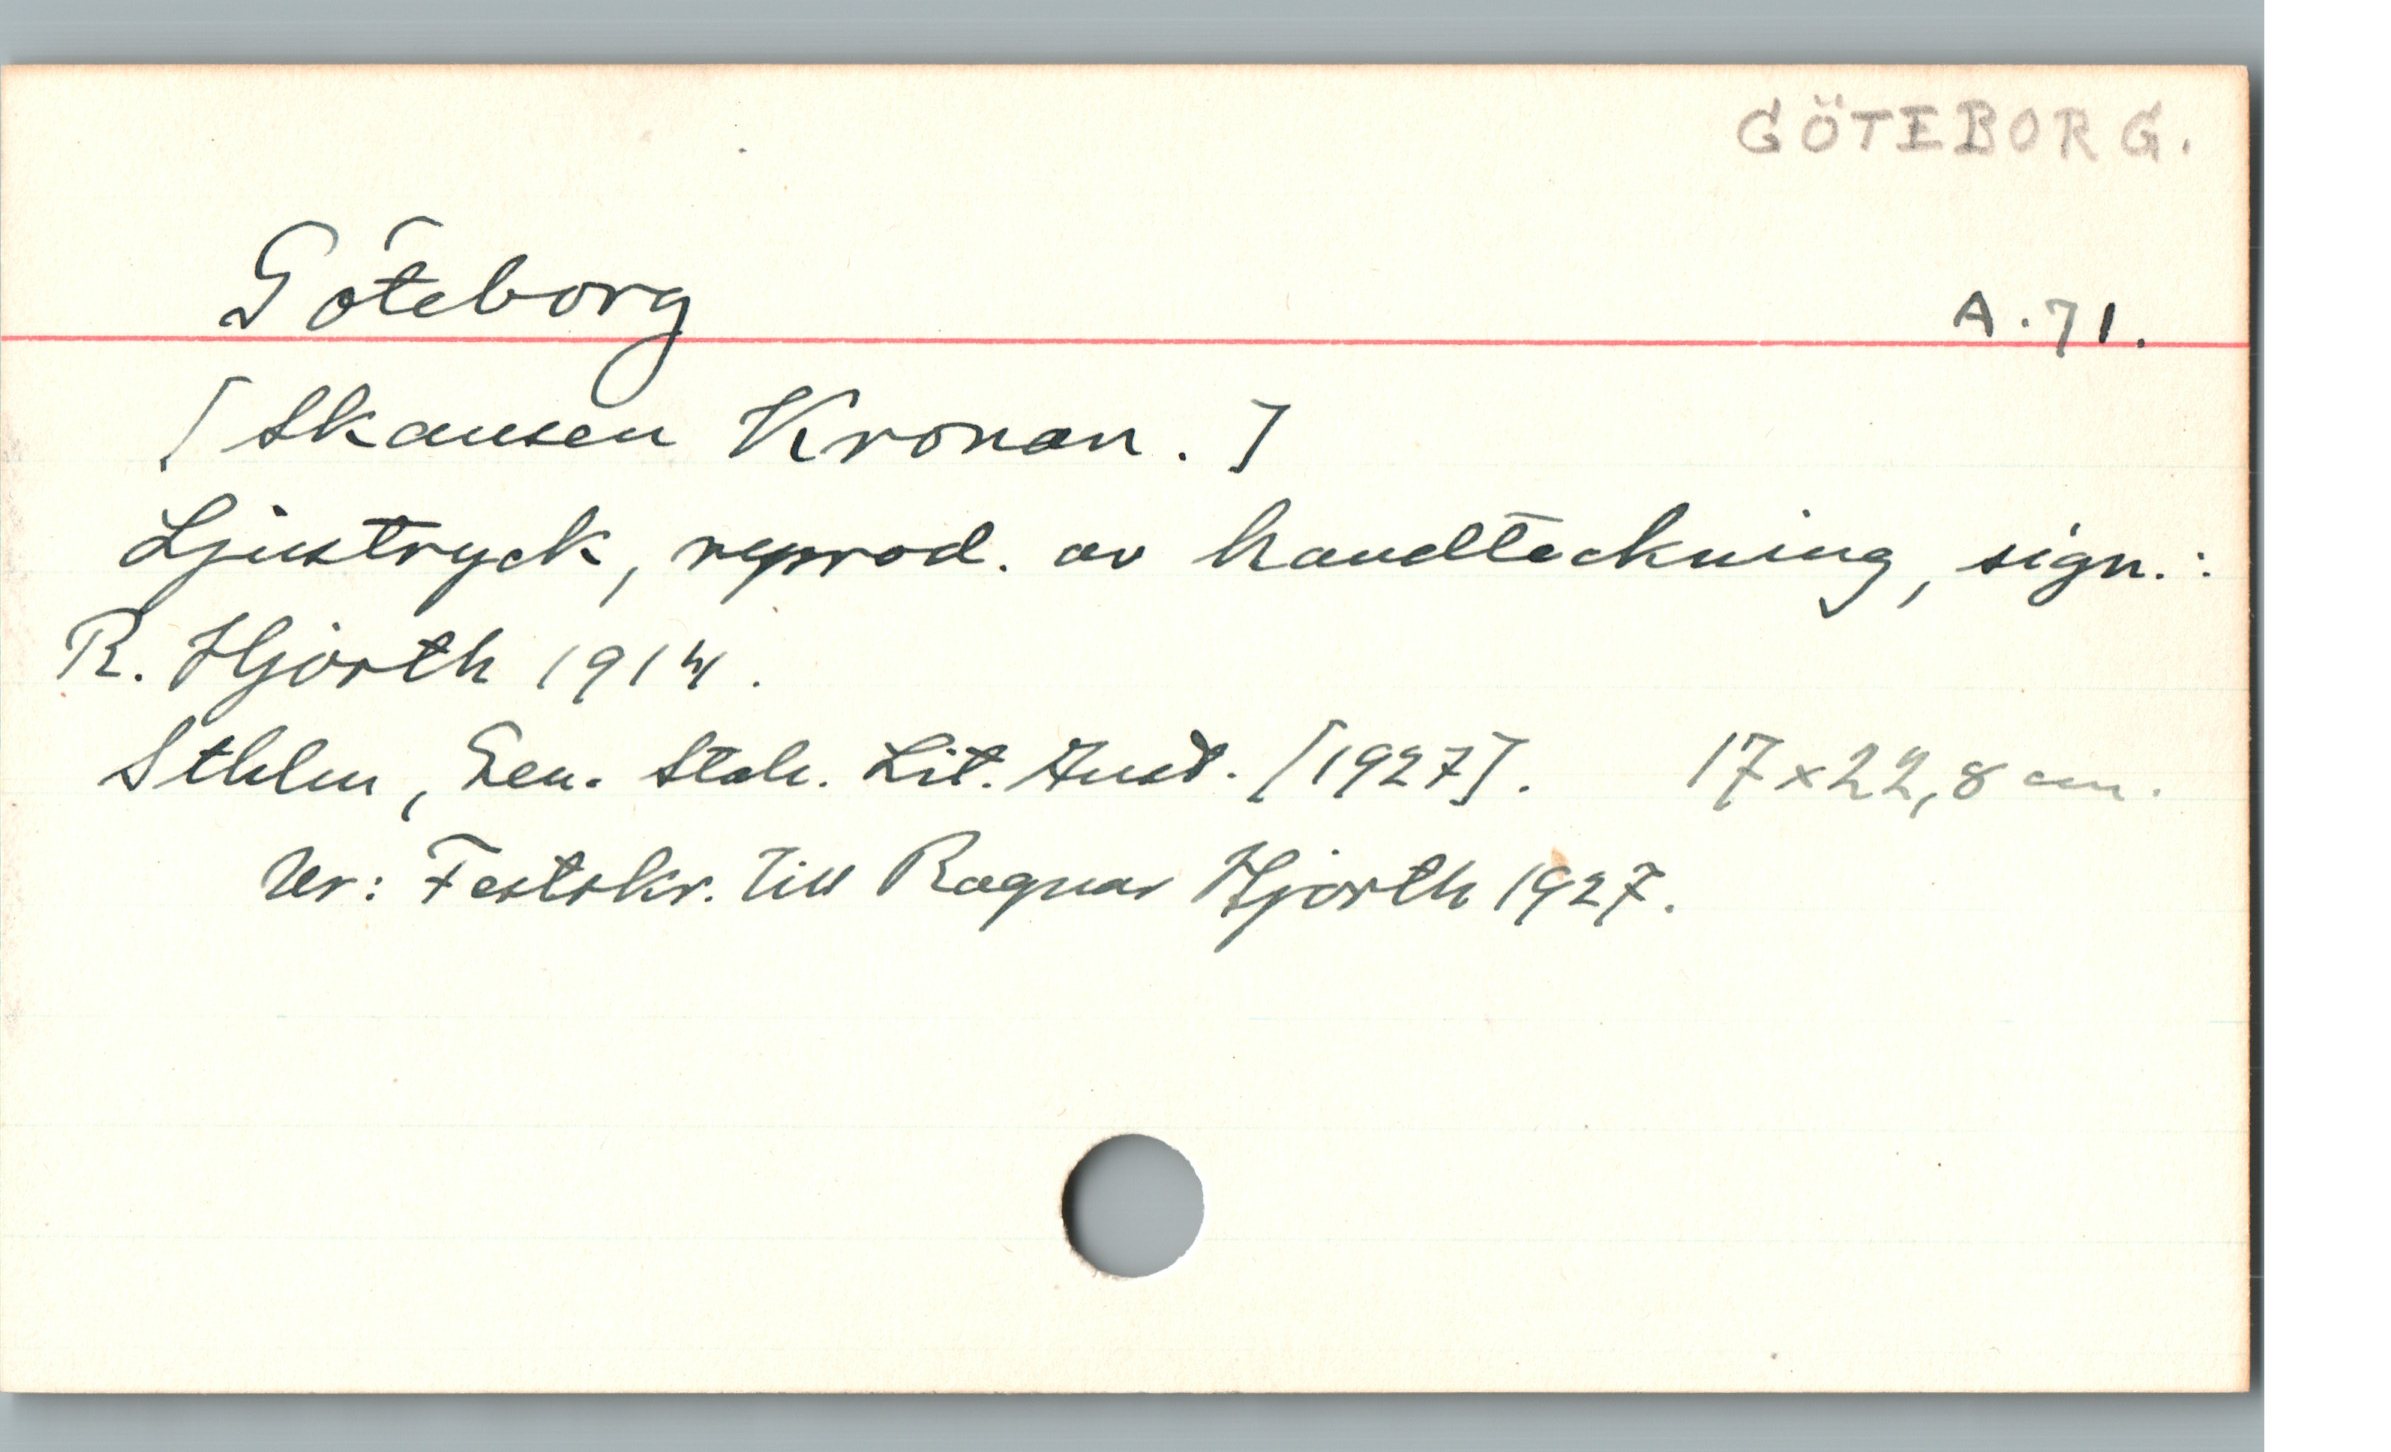 GÖTEBORG.
Göteborg
A.71.
[Skansen Kronan.]
Ljustryck, reprod. av handteckning, sign.:
R. Hjorth 1914.
Sthlm, Gen. Stab. Lit. Anst. [1927]. 17x22,8 cm.
Ur: Festskr. till Ragnar Hjorth 1927.